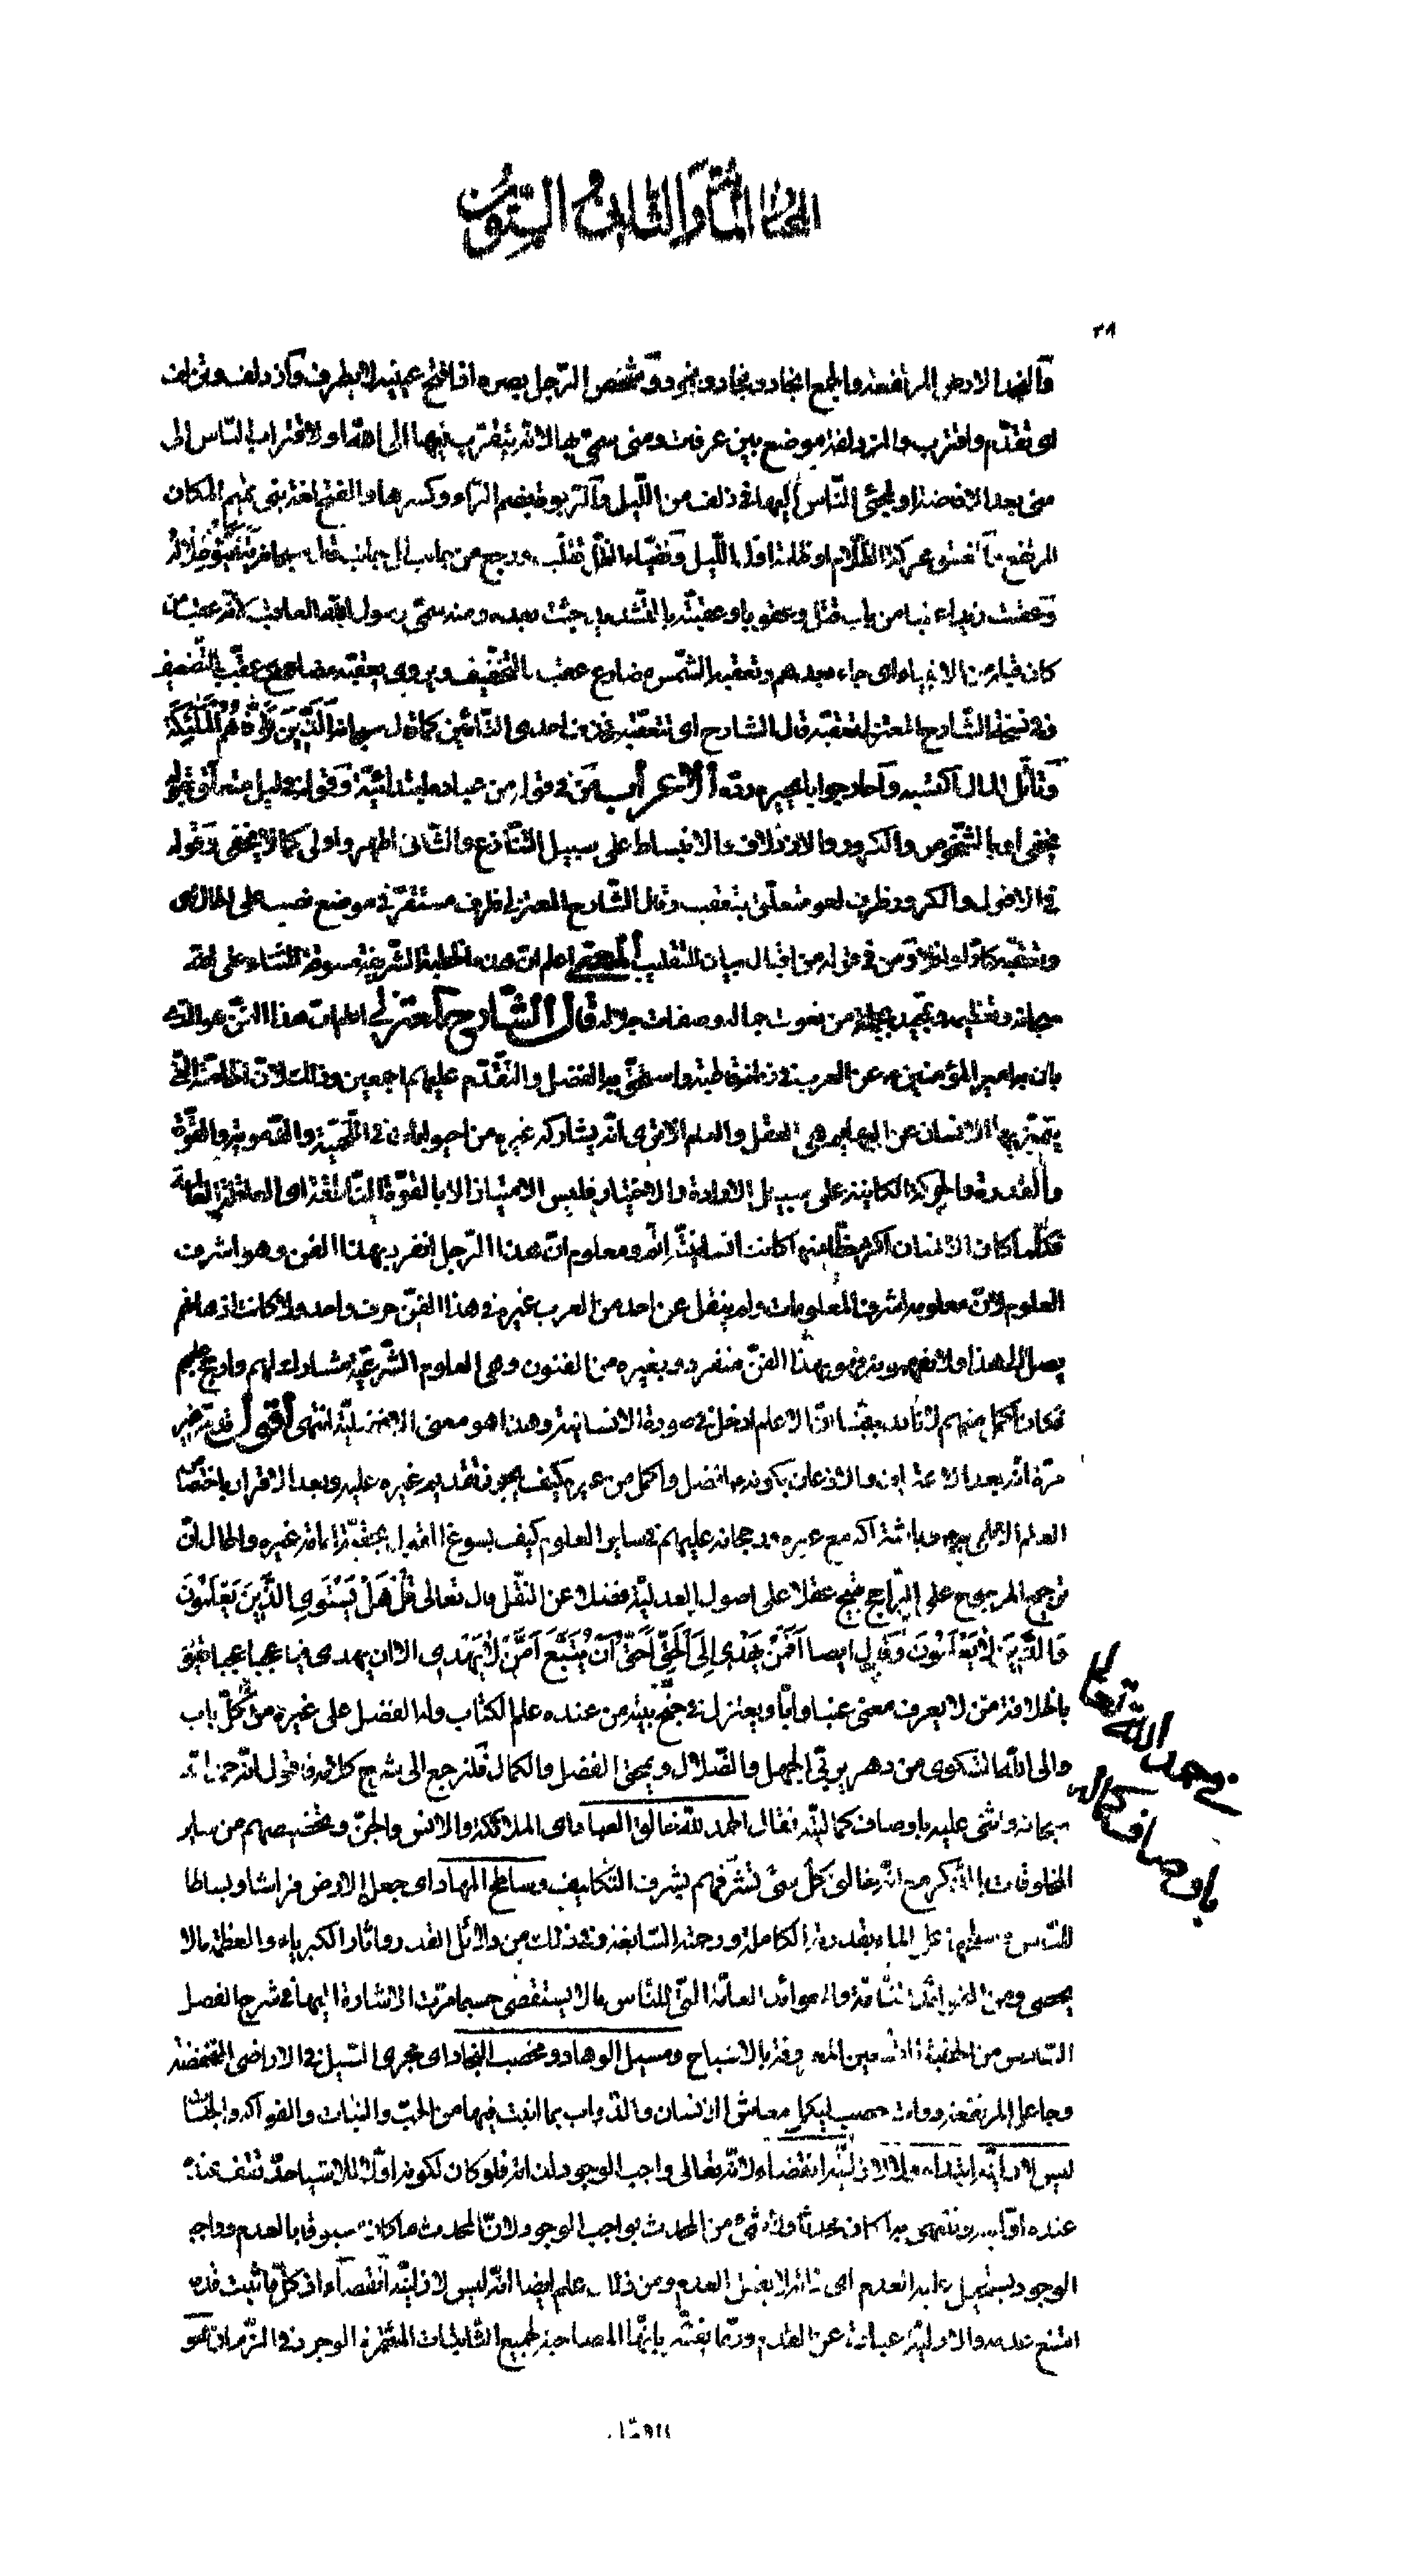 المختار المأة والثانى والستون
٣٨
و النجد الارض المرتفعة والجمع انجاد ونجاد ونجود و شخص الرّجل بصره اذا فتح عينيه لا يطرف و ازدلف وتزلف
اى تقدّم واقترب والمزدلفة موضع بين عرفات ومنى سمّى بها لانّه يتقرّب فيها الى اللّه او لاقتراب النّاس الى
منى بعد الافاضة او لمجئ النّاس اليها فى زلف من اللّيل و الربوة بضم الرّاء وكسرها والفتح لغة بنى تميم المكان
المرتفع و الغسق محركة الظّلام او ظلمة اوّل اللّيل و تفيّاء الظلّ تقلّب ورجع من جانب الى جانب قال سبحانه يَتَفَيَّؤُ ظِلالُهُ
و عقبت زيداء عقبا من باب قتل وعقوبا وعقّبته بالتّشديد جئت بعده ومنه سمّى رسول اللّه العاقب لانّه عقب من
كان قبله من الانبياء اى جاء بعدهم وتعقبه الشّمس مضارع عقب بالتّخفيف ويروى يعقّبه مضارع عقّب بالتّضعيف
وفى نسخة الشّارح المعتزلى تعقبه قال الشارح اى تتعقّبه فحذف احدى التّائين كما قال سبحانه الَّذِينَ تَوَفّاهُمُ الْمَلائِكَةُ
و تأثّل المال اكتسبه و احار جوابا يحيره ردّه الاعراب من فى قوله من عباده ابتدائيّة و قوله فى ليل متعلّق بقوله
يخفى او بالشّخوص والكرور والازدلاف والانبساط على سبيل التّنازع والثّانى اظهر واولى كما لا يخفى و قوله
فى الافول والكرور ظرف لغو متعلّق بتعقب وقال الشّارح المعتزلى ظرف مستقرّ فى موضع نصب على الحال اى
وتعقبه كارّا وافلا و من فى قوله من اقبال بيان للتقليب المعنى اعلم انّ هذه الخطبة الشّريفة مسوقة للثّناء على اللّه
سبحانه وتعظيمه وتمجيده بجملة من نعوت جماله وصفات جلاله قال الشّارح المعتزلى اعلم انّ هذا الفنّ هو الّذى
بان به امير المؤمنين عن العرب فى زمانه قاطبة واستحقّ به الفضل والتّقدّم عليهم اجمعين وذلك لانّ الخاصّة الّتى
يتميّز بها الانسان عن البهايم هى العقل والعلم الا ترى انّه يشاركه غيره من الحيوانات فى اللّحميّة والدّمويّة والقوّة
والقدرة والحركة الكاينة على سبيل الارادة والاختيار فليس الامتياز الا بالقوّة النّاطقة اى العاقلة العالمة
فكلّما كان الانسان اكثر حظّا منها كانت انسانيّته اتمّ ومعلوم انّ هذا الرّجل انفرد بهذا الفن وهو اشرف
العلوم لانّ معلومه اشرف المعلومات ولم ينقل عن احد من العرب غيره فى هذا الفنّ حرف واحد ولا كانت اذهانهم
يصل الى هذا ولا يفهمونه فهو بهذا الفنّ منفرد وبغيره من الفنون وهى العلوم الشّرعيّة مشارك لهم وارجح عليهم
فكان اكمل منهم لانّا قد بيّنّا انّ الاعلم ادخل فى صورة الانسانية وهذا هو معنى الافضليّة انتهى اقول
مرّة انّه بعد الاعتراف والاذعان بكونه افضل واكمل من غيره كيف يجوز تقديم غيره عليه وبعد الاقرار باختصاص
العلم الالهى به وباشتراكه مع غيره ورجحانه عليهم فى ساير العلوم كيف يسوغ القول بحقيّة امامة غيره والحال انّ
ترجيح المرجوح على الرّاجح قبيح عقلا على اصول العدليّة فضلا عن النّقل قال تعالى قُلْ هَلْ يَسْتَوِى الَّذِينَ يَعْلَمُونَ
وَالَّذِينَ لا يَعْلَمُونَ وقال ايضا أَفَمَنْ يَهْدِي إِلَى الْحَقِّ أَحَقُّ أَنْ يُتَّبَعَ أَمَّنْ لا يَهِدِّي الا ان يهدى فيا عجبا عجبا
بالخلافة من لا يعرف معنى عنبا وابّا ويعتزل فى جنح بيته من عنده علم الكتاب وله الفضل على غيره من كلّ باب
والى اللّه المشكوى من دهر يربّى الجهل والضّلال ويمحق الفضل والكمال فلنرجع الى شرح كلامه فاقول انّه حمد اللّه
سبحانه واثنى عليه باوصاف كماليّة فقال الحمد للّه خالق العباد اى الملائكة والانس والجنّ وتخصيصهم من ساير
المخلوقات بالذّكر مع انّه خالق كلّ شئ لتشرّفهم بشرف التّكليف وساطح المهاد اى جعل الارض فراشا وبساطا
للنّاس وسطحها على الماء بقدرته الكاملة ورحمته السّابغة وفى ذلك من دلائل القدرة واثار الكبرياء والعظمة ما لا
يحصى ومن الفوائد التّامّة والعوائد العامّة الّتى للنّاس ما لا يستقصى حسبما مرّت الاشارة اليها فى شرح الفصل
السّادس من الخطبة التسعين المعروفة بالاشباح ومسيل الوهاد ومخصب النجاد اى مجرى السّيل فى الاراضى المنخفضة
وجاعل المرتفعة ذوات خصب ليكمل معاش الانسان والدّواب بما انبت فيها من الحبّ والنبات والفواكه والجنّات
ليس لاوّليّته ابتداء ولا لازليّته انقضاء لانّه تعالى واجب الوجود لذاته فلو كان لكونه اوّلا للاشياء حدّ تقف عنده
عنده اوّليّته وتنتهى به لكان محدثا ولا شئ من المحدث بواجب الوجود لانّ المحدث ما كان مسبوقا بالعدم وواجب
الوجود يستحيل عليه العدم اى ذاته لا يقبل العدم ومن ذلك علم ايضا انّه ليس لازليّته انقضاء اذ كلّ ما ثبت قدمه
امتنع عدمه والازليّة عبارة عن القدم وربّما يفسّر بانّها المصاحبة لجميع الثّابتات المستمرة الوجود فى الزّمان
فى حمد اللّه تعالى
باوصاف كماله